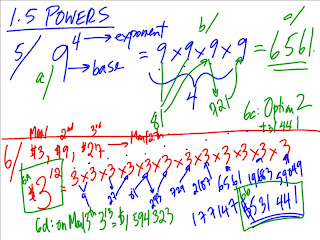 1.5 POWERS
5/ a/ 9⁴ → exponent → base = 9 × 9 × 9 × 9 = 6561
b/ a/
4
81 × 81
6c: Option 2
$531 441
6/ May 1 2nd 3rd May 12th
$3, $9, $27
6a $3¹² = 3×3×3×3×3×3×3×3×3×3×3×3
9 27 81 243 729 2187 6561 19683 59049
177147 6b $531 441
6d: on May 13th 3¹³ = $1 594 323